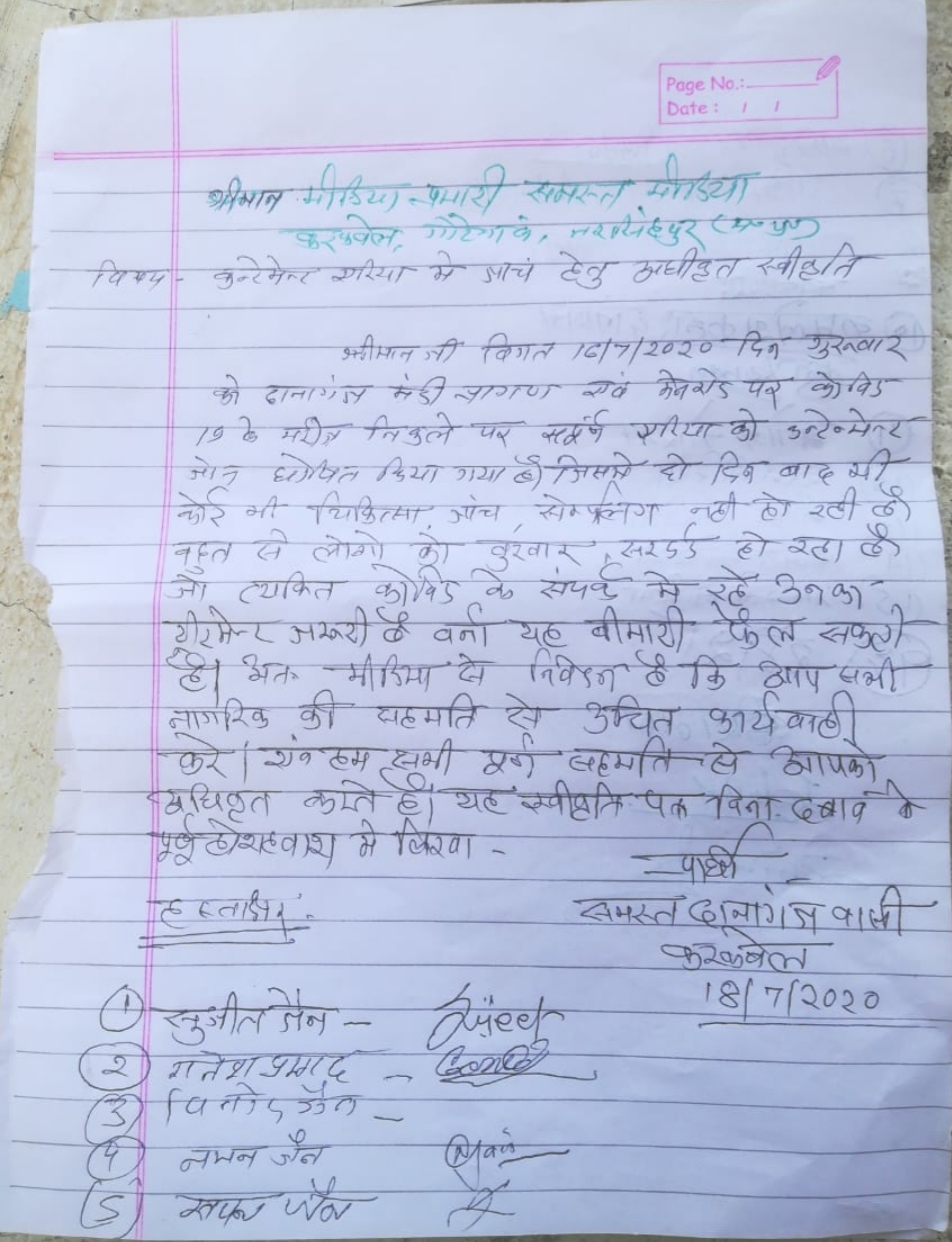 Page No.:
Date : / /
श्रीमान मीडिया प्रभारी समस्त मीडिया
करकबेल, गोटेगांव, नरसिंहपुर (म०प्र०)
विषय - कन्टेमेन्ट एरिया मे जांच हेतु अधीकृत स्वीकृति
श्रीमान जी विगत 16/7/2020 दिन गुरूवार
को दानागंज मंडी प्रागण एवं मेनरोड पर कोविड
19 के मरीज निकले पर संपूर्ण एरिया को कन्टेन्मेन्ट
जोन घोषित किया गया है। जिसमे दो दिन बाद भी
कोई भी चिकित्सा, जांच, सेम्पलिंग नही हो रही है।
बहुत से लोगो को बुखार, सरदर्द हो रहा है
जो व्यकित कोविड के संपर्क मे रहे उनका
ट्रीटमेन्ट जरूरी है वर्ना यह बीमारी फैल सकती
है। अतः मीडिया से निवेदन है कि आप सभी
नागरिक की सहमति से उचित कार्यवाही
करे। एवं हम सभी पूर्ण सहमति से आपको
अधिकृत करते है। यह स्वीकृति पत्र बिना दबाव के
पूर्ण होशहवाश मे लिखा -
प्रार्थी
हस्ताक्षर.
समस्त दानागंज वासी
करकबेल
18/7/2020
1 सुजीत जैन -
2 गनेश प्रसाद -
3 विनोद जैन -
4 नमन जैन
5 जैन